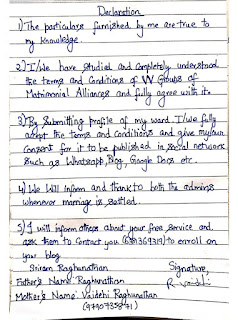 Declaration
1) The particulars furnished by me are true to
my knowledge.
2) I/We have studied and completely understood
the terms and Conditions of W Groups of
Matrimonial Alliances and fully agree with it.
3) By Submitting profile of my ward I/we fully
accept the terms and Conditions and give my/our
Consent for it to be published in social network
such as Whatsapp, Blog, Google Docs etc.
4) We Will Inform and thank to both the admins
whenever marriage is settled.
5) I will inform others about your free service and
ask them to Contact you to enroll on
your blog
Sriram Raghunathan Signature,
Father's Name: Raghunathan
Mother's Name: Vaidehi Raghunathan